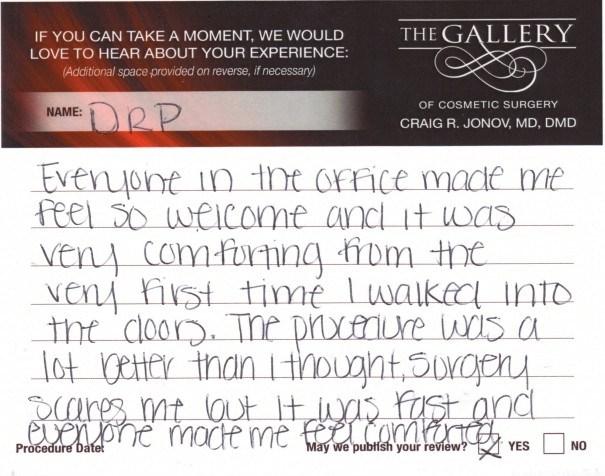 IF YOU CAN TAKE A MOMENT, WE WOULD
LOVE TO HEAR ABOUT YOUR EXPERIENCE:
(Additional space provided on reverse, if necessary)
NAME: DRP
THE GALLERY
OF COSMETIC SURGERY
CRAIG R. JONOV, MD, DMD
Everyone in the office made me
feel so welcome and it was
very comforting from the
very first time I walked into
the doors. The procedure was a
lot better than I thought, surgery
scares me but it was fast and
everyone made me feel comforted.
Procedure Date:
May we publish your review? YES NO